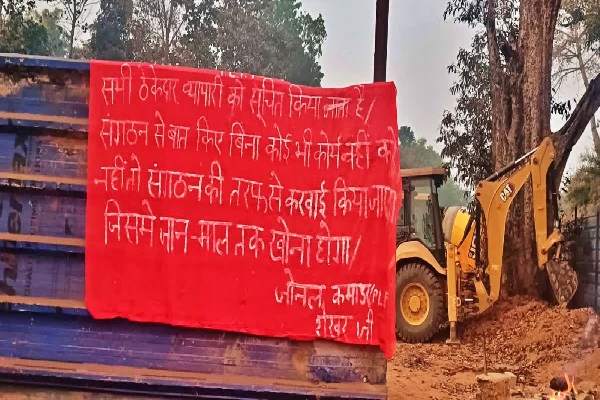 सभी ठेकेदार व्यापारी को सूचित किया जाता है/
संगठन से बात किए बिना कोई भी कार्य नहीं करें
नहीं तो संगठन की तरफ से करवाई किया जाएगा
जिसमे जान-माल तक खोना होगा/
जोनल कमांडर PLF
शेखर जी
CAT